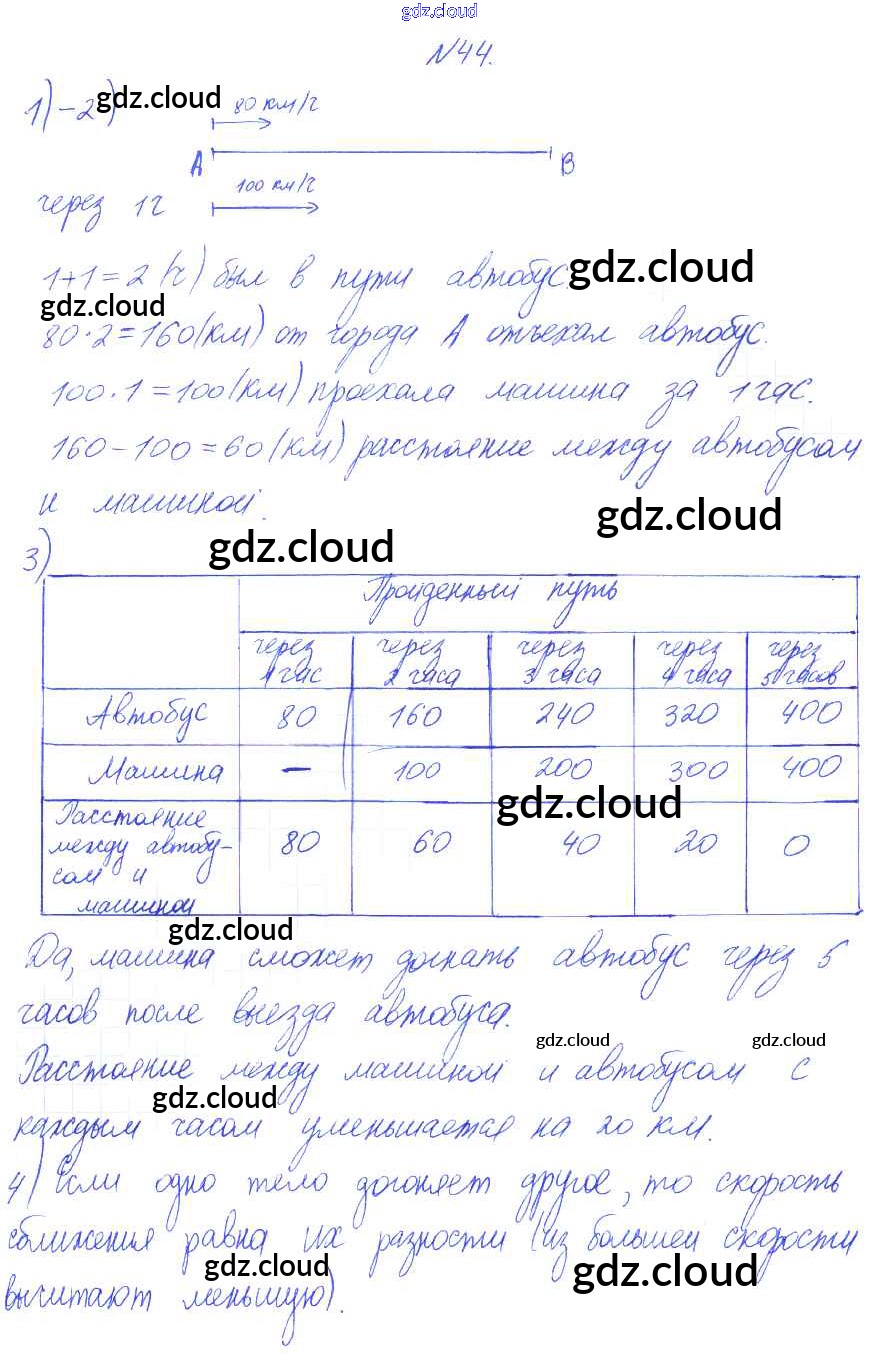 gdz.cloud
№44.
1)-2) gdz.cloud 80 км/ч
A B
через 1ч 100 км/ч
1+1=2(ч) был в пути автобус. gdz.cloud
gdz.cloud
80·2=160(км) от города А отъехал автобус.
100·1=100(км) проехала машина за 1 час.
160-100=60(км) расстояние между автобусом
и машиной.
gdz.cloud
3) gdz.cloud
Пройденный путь
через 1 час через 2 часа через 3 часа через 4 часа через 5 часов
Автобус 80 160 240 320 400
Машина – 100 200 300 400
gdz.cloud
Расстояние
между автобу-
сом и
машиной 80 60 40 20 0
gdz.cloud
Да, машина сможет догнать автобус через 5
часов после выезда автобуса.
gdz.cloud gdz.cloud
Расстояние между машиной и автобусом с
gdz.cloud
каждым часом уменьшается на 20 км.
4) Если одно тело догоняет другое, то скорость
сближения равна их разности (из большей скорости
gdz.cloud gdz.cloud
вычитают меньшую).